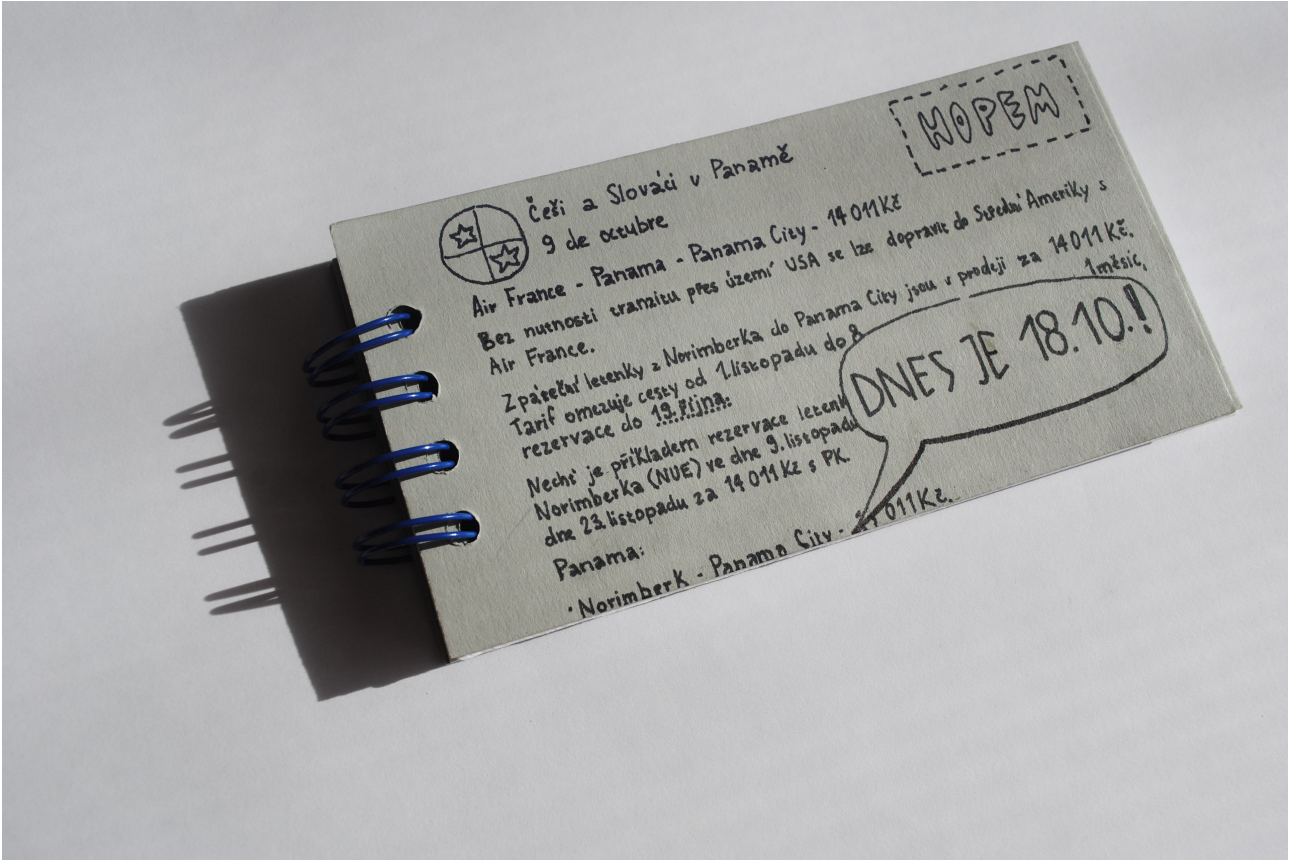 HOPEM
Češi a Slováci v Panamě
9 de octubre
Air France - Panama - Panama City - 14 011 Kč
Bez nutnosti tranzitu přes území USA se lze dopravit do Střední Ameriky s
Air France.
Zpáteční letenky z Norimberka do Panama City jsou v prodeji za 14 011 Kč.
Tarif omezuje cesty od 1.listopadu do 8.
1 měsíc,
rezervace do 19. října:
DNES JE 18.10.!
Nechť je příkladem rezervace letenk
Norimberka (NUE) ve dne 9. listopadu
dne 23. listopadu za 14 011 Kč s PK.
Panama:
· Norimberk - Panama City - 011 Kč.